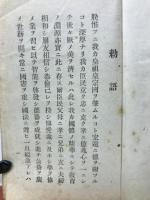 勅語
朕惟フニ我カ皇祖皇宗國ヲ肇ムルコト宏遠ニ德ヲ樹ツル
コト深厚ナリ我カ臣民克ク忠ニ克ク孝ニ億兆心ヲ一ニシ
テ世々厥ノ美ヲ濟セルハ此レ我カ國體ノ精華ニシテ教育
ノ淵源亦實ニ此ニ存ス爾臣民父母ニ孝ニ兄弟ニ友ニ夫婦
相和シ朋友相信シ恭儉己レヲ持シ博愛衆ニ及ホシ學ヲ修
メ業ヲ習ヒ以テ智能ヲ啓發シ德器ヲ成就シ進テ公益ヲ廣
メ世務ヲ開キ常ニ國憲ヲ重シ國法ニ遵ヒ一旦緩急アレハ